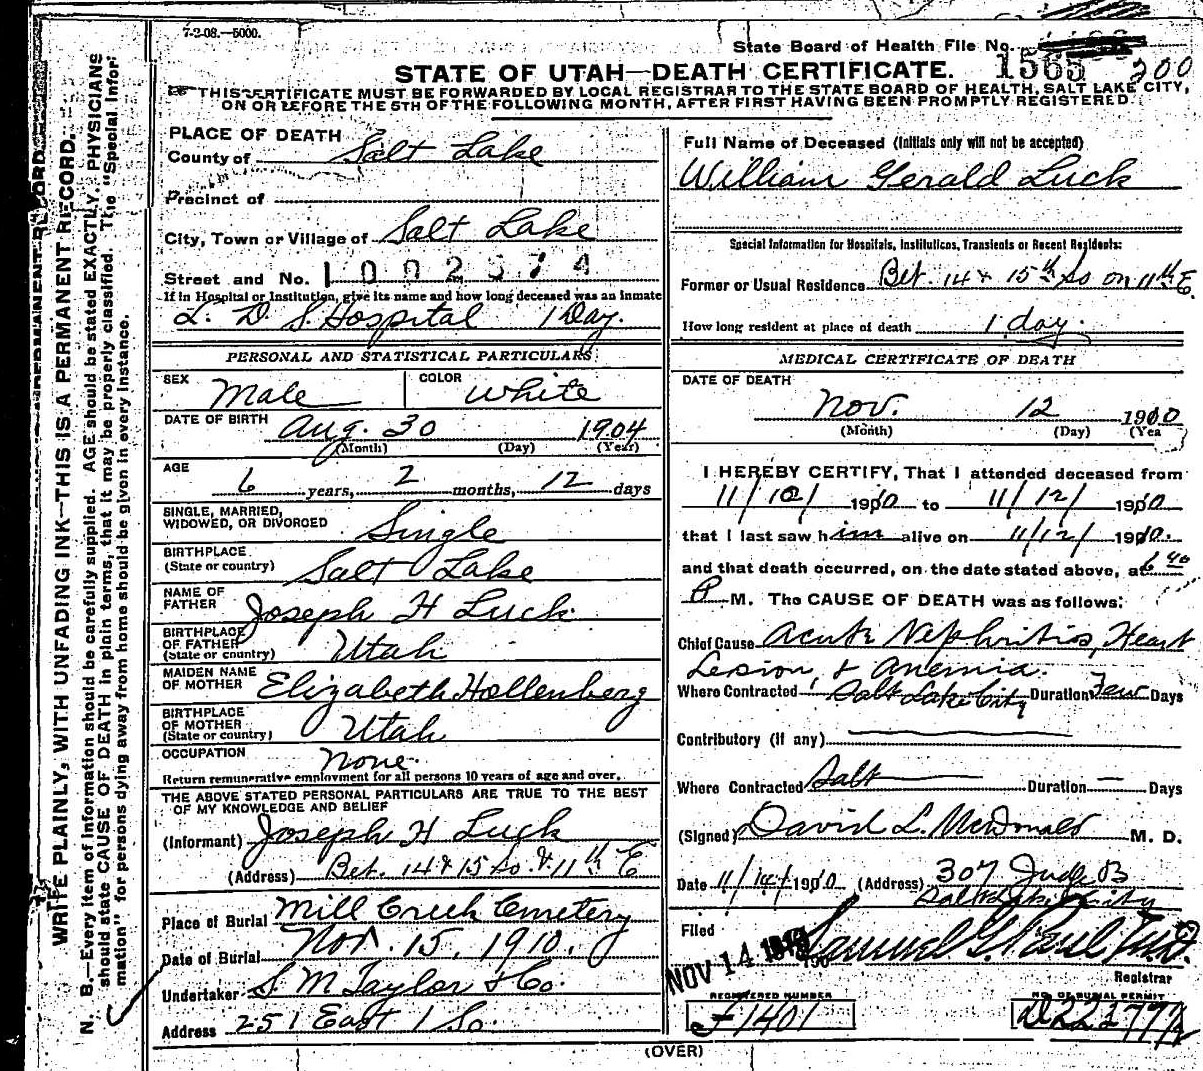 7-2-08.—5000.
State Board of Health File No.
1565 200
STATE OF UTAH—DEATH CERTIFICATE.
THIS CERTIFICATE MUST BE FORWARDED BY LOCAL REGISTRAR TO THE STATE BOARD OF HEALTH, SALT LAKE CITY,
ON OR BEFORE THE 5TH OF THE FOLLOWING MONTH, AFTER FIRST HAVING BEEN PROMPTLY REGISTERED.
PERMANENT RECORD.
WRITE PLAINLY, WITH UNFADING INK—THIS IS A PERMANENT RECORD.
N. B.—Every item of information should be carefully supplied. AGE should be stated EXACTLY. PHYSICIANS
should state CAUSE OF DEATH in plain terms, that it may be properly classified. The "Special Infor-
mation" for persons dying away from home should be given in every instance.
PLACE OF DEATH
County of Salt Lake
Precinct of
City, Town or Village of Salt Lake
Street and No. 1002574
If in Hospital or Institution, give its name and how long deceased was an inmate
L. D. S. Hospital 1 Day.
PERSONAL AND STATISTICAL PARTICULARS
SEX Male COLOR White
DATE OF BIRTH Aug. 30 1904
(Month) (Day) (Year)
AGE
6 years, 2 months, 12 days
SINGLE, MARRIED,
WIDOWED, OR DIVORCED Single
BIRTHPLACE
(State or country) Salt Lake
NAME OF
FATHER Joseph H Luck
BIRTHPLACE
OF FATHER
(State or country) Utah
MAIDEN NAME
OF MOTHER Elizabeth Hollenberg
BIRTHPLACE
OF MOTHER
(State or country) Utah
OCCUPATION None.
Return remunerative employment for all persons 10 years of age and over.
THE ABOVE STATED PERSONAL PARTICULARS ARE TRUE TO THE BEST
OF MY KNOWLEDGE AND BELIEF
(Informant) Joseph H Luck
(Address) Bet. 14 & 15 So. & 11th E
Place of Burial Mill Creek Cemetery
Date of Burial Nov. 15, 1910.
Undertaker S. M Taylor & Co.
Address 251 East 1 So.
Full Name of Deceased (Initials only will not be accepted)
William Gerald Luck
Special Information for Hospitals, Institutions, Transients or Recent Residents:
Former or Usual Residence Bet. 14 & 15th So on 11th E.
How long resident at place of death 1 day.
MEDICAL CERTIFICATE OF DEATH
DATE OF DEATH
Nov. 12 1910
(Month) (Day) (Yea
I HEREBY CERTIFY, That I attended deceased from
11/10/ 1910 to 11/12/ 1910
that I last saw him alive on 11/12/ 1910.
and that death occurred, on the date stated above, at 6 40
P M. The CAUSE OF DEATH was as follows:
Chief Cause Acute Nephritis, Heart
Lesion, & Anemia.
Where Contracted Salt Lake City Duration Few Days
Contributory (if any)
Where Contracted Salt Duration — Days
(Signed) David L. McDonald M. D.
Date 11/14/1910 (Address) 307 Judge B
Salt Lake City
Filed NOV 14 1910 Samuel G. Paul M.D.
Registrar
REGISTERED NUMBER
J 1401
NO. OF BURIAL PERMIT
(OVER)